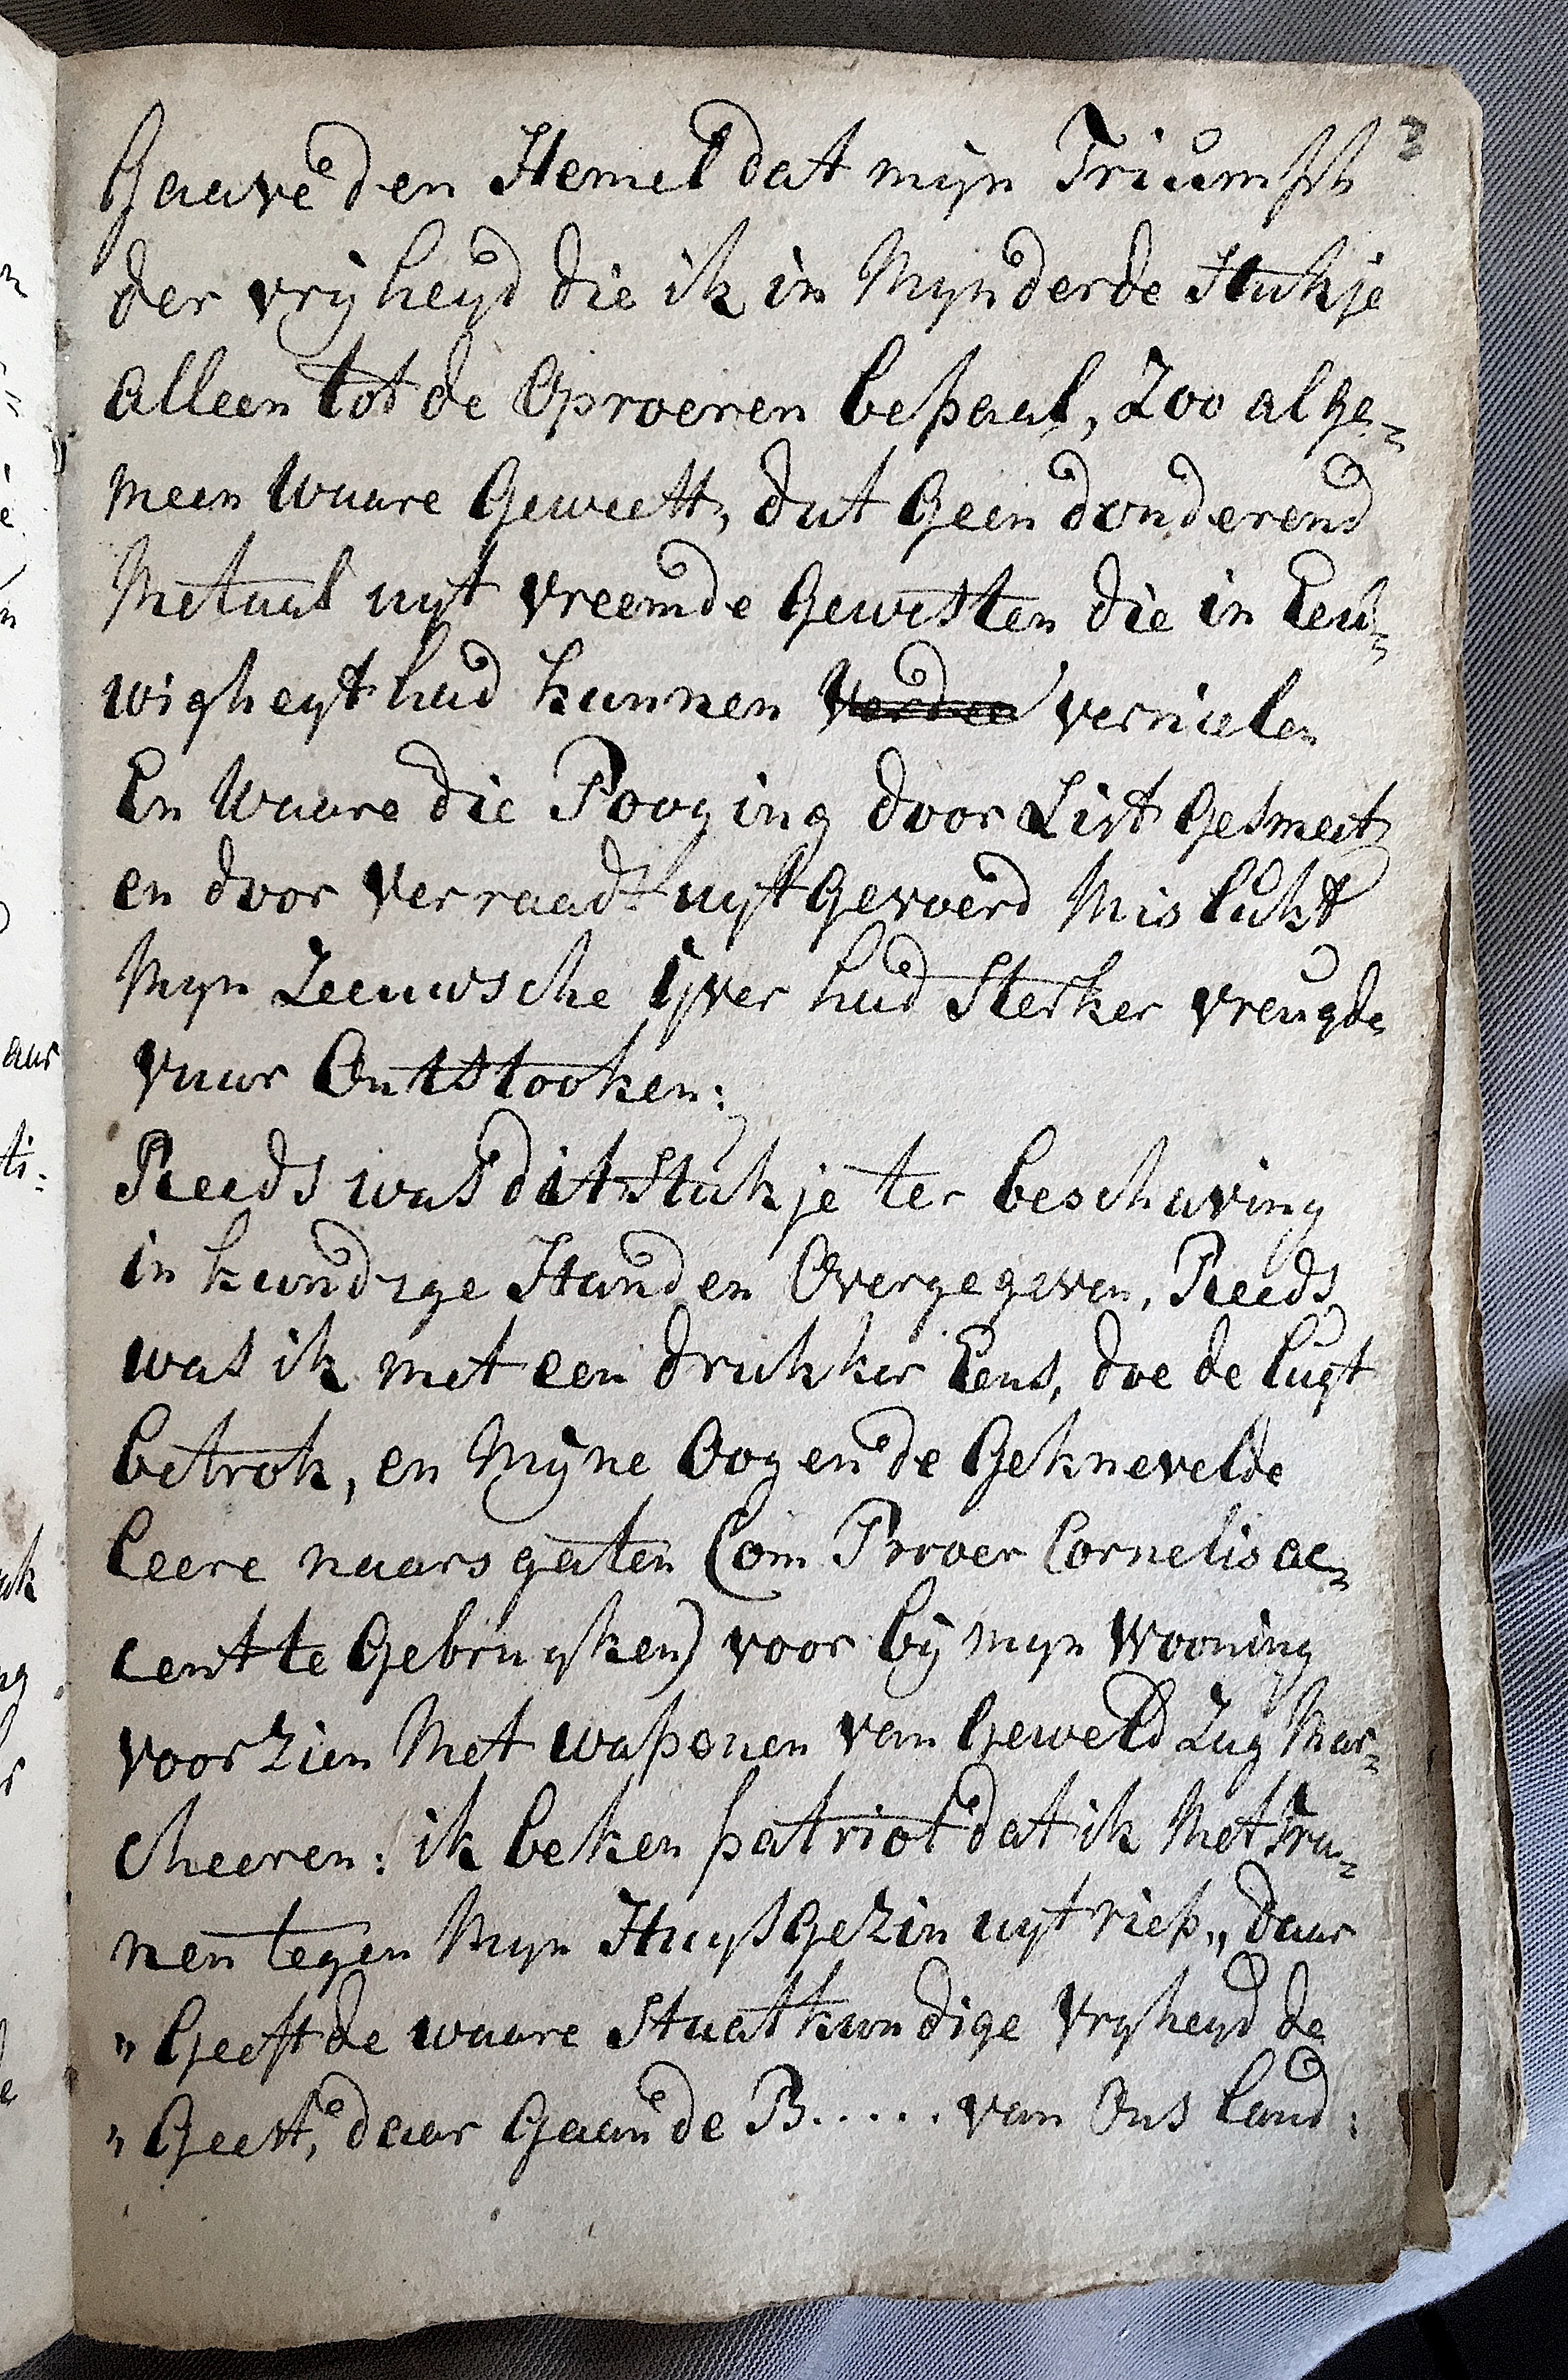 3
Gaave den Hemel dat mijn Triumph
der vrijheyd die ik in Mynderde Stukje
alleen tot de Oproeren bepaal, Zoo alge=
meen waare Geweest, dat Geen donderend
Metaal uyt vreemde Gewesten die in Eeu=
wigheyt had kunnen vernielen
En Waare die Pooging door List Gesmeet
en door Verraadt uytgevoerd Mislukt
Myn Zeeuwsche ijver had Sterker vreugde
vuur Ontstooken:
Reeds was dit Stukje ter beschaving
in kundige Handen Overgegeven, Reeds
was ik met een drukker Eens, doe de lugt
betrok, en Mijne Oogen de Geknevelde
leere naarsgaten (om Proer Cornelis ac=
cent te Gebruyken) voor bij myn Wooning
voorzien Met wapenen van Geweld Zag Mar=
cheeren: ik beken patriot dat ik Met Tra=
nen tegen Myn Huysgezin uytriep „ daar
" Geeft de waare Staatkundige Vryheyd de
" Geest, daar Gaan de B..... van Ons land: